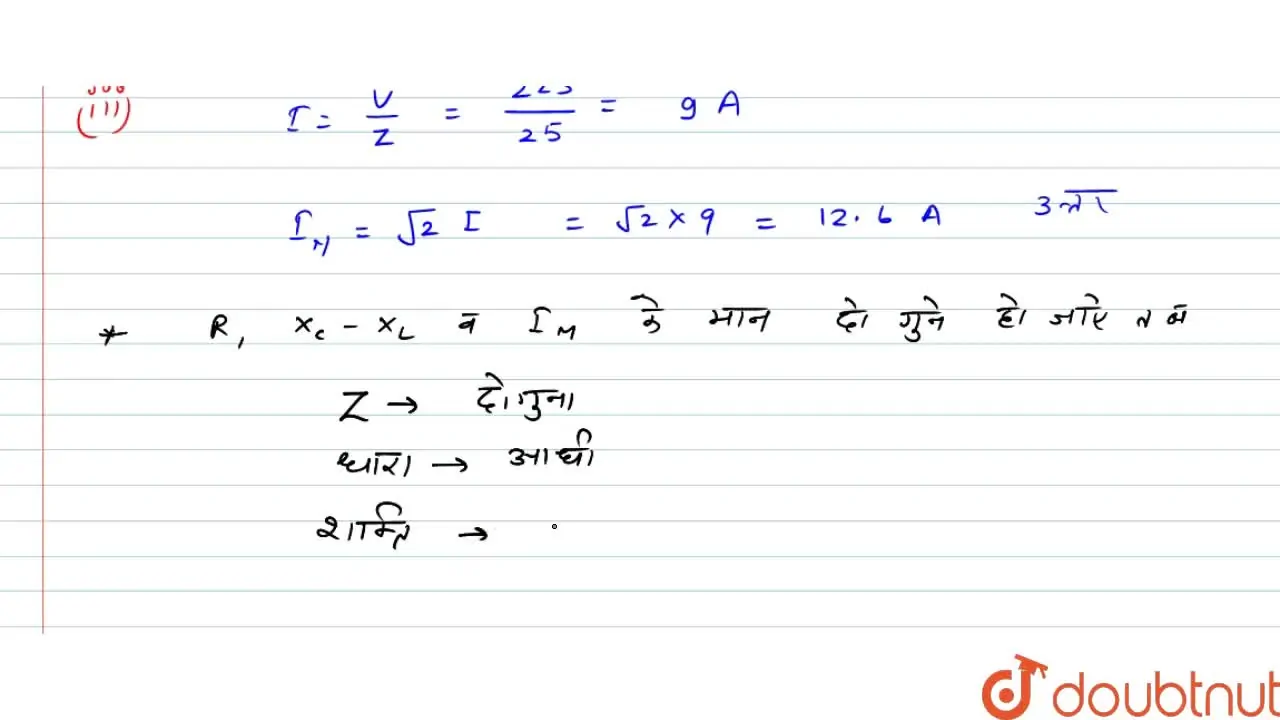 (iii) I = V/Z = 225/25 = 9 A
I_M = √2 I = √2 × 9 = 12.6 A उत्तर
* R, X_C - X_L व I_M के मान दो गुने हो जाऐ तब
Z → दोगुना
धारा → आधी
शक्ति →
doubtnut